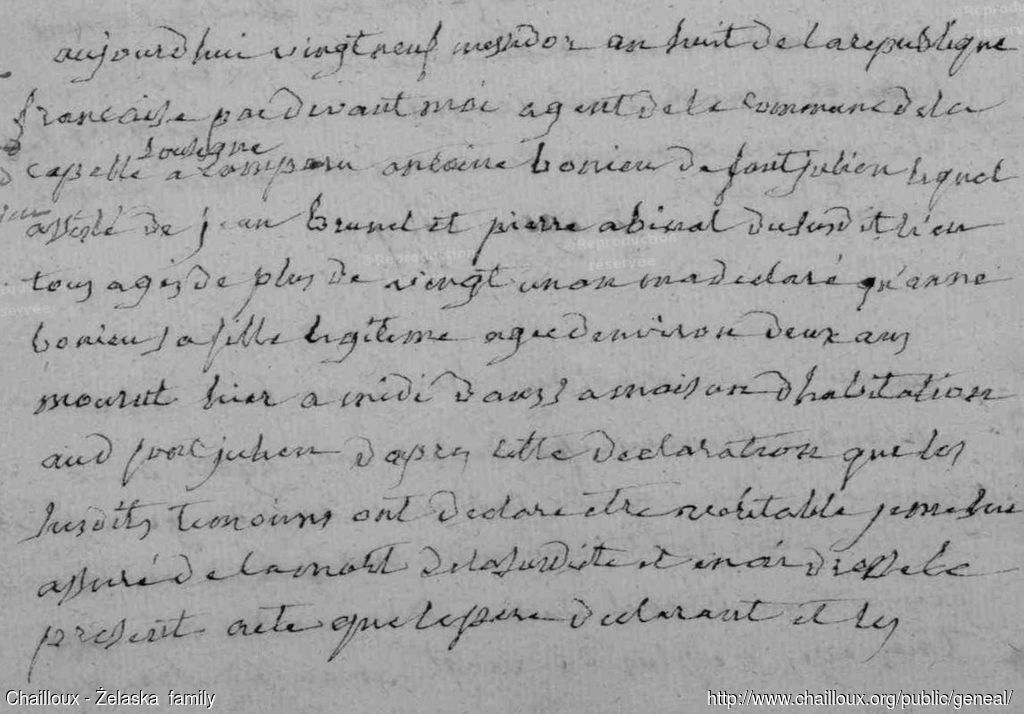 aujourdhui vingt neuf messidor an huit de la republique
francaise par devant moi agent de la commune de la
soulogne
capelle a comparu antoine bonieu de fontjulien lequel
assisté de jean brunel et pierre abinal du susdit lieu
tous agés de plus de vingt un an ma declaré qu'anne
bonieu sa fille legiteme agee denviron deux ans
mourut hier a midi dans la maison dhabitation
aud fontjulien dapres cette declaration que les
susdits temoins ont declare etre veritable je me suis
assuré de la mort de la susdite et en ai dresse le
present acte que le pere declarant et les
©Reproduction réservée
Chailloux - Želaska family
http://www.chailloux.org/public/geneal/